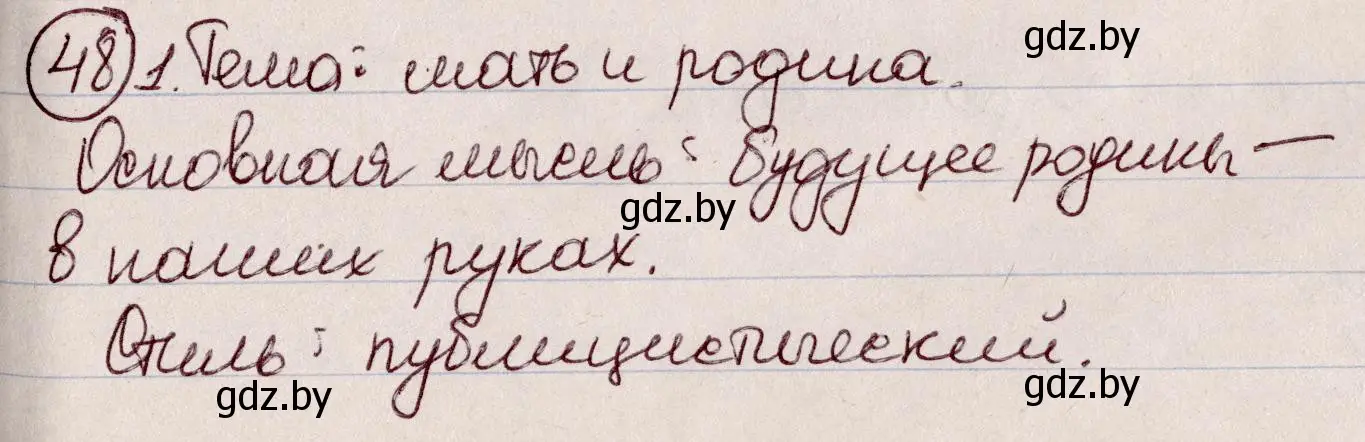 48 1. Тема: мать и родина. gdz.by
Основная мысль: будущее родины —
gdz.by
в наших руках.
Стиль: публицистический.
gdz.by gdz.by